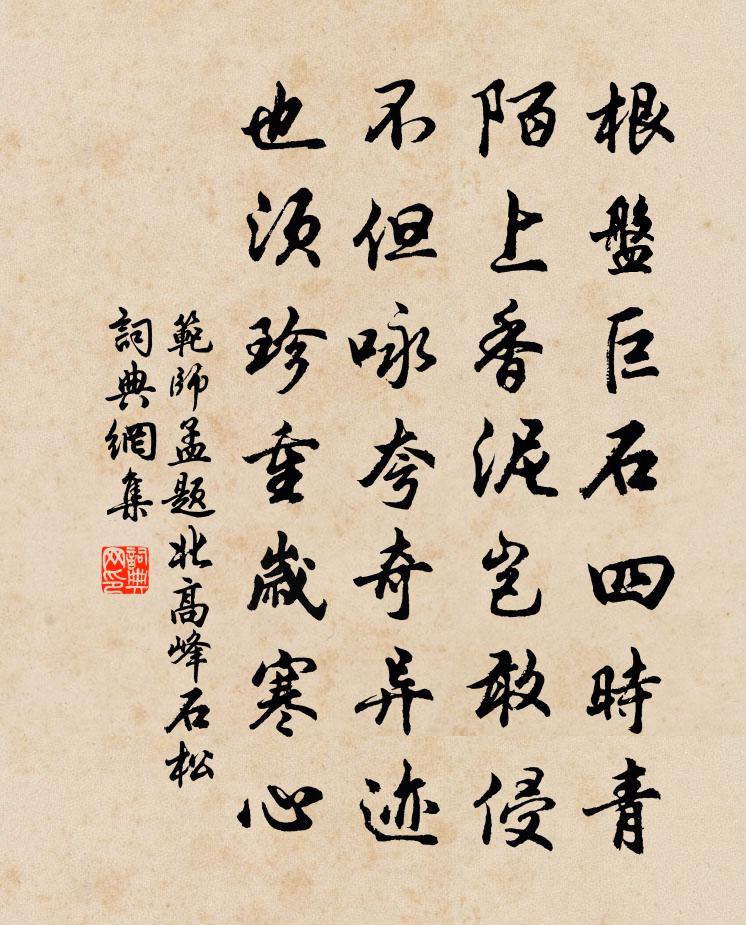 根盤巨石四時青
陌上香泥豈敢侵
不但咏夸奇异迹
也須珍重歲寒心
範師孟題北高峰石松
詞典網集
詞典网印